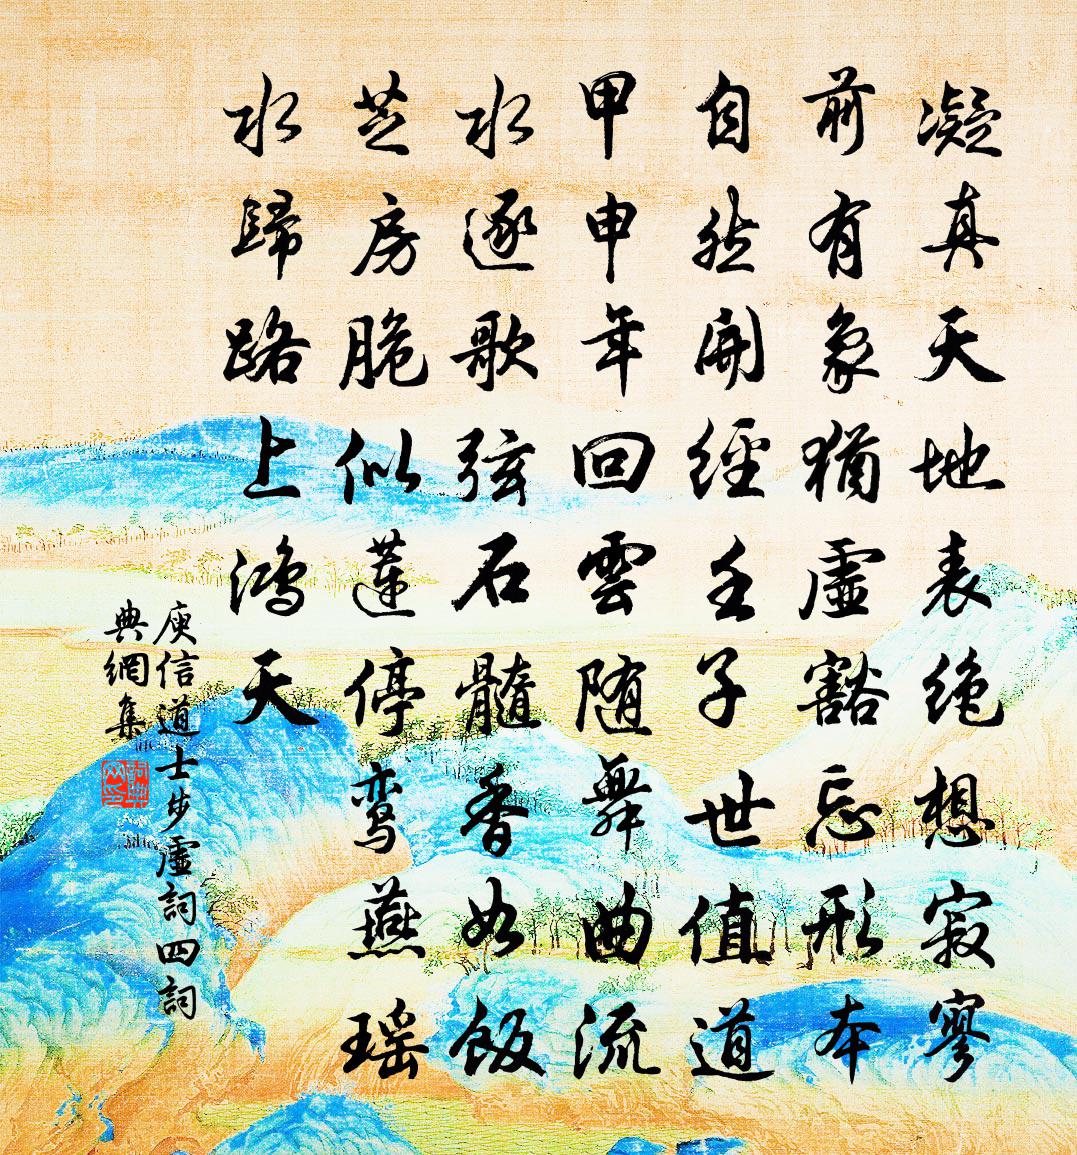 凝真天地表絶想寂寥
前有象猶虛豁忘形本
自然開經壬子世值道
甲申年回雲随舞曲流
水逐歌弦石髓香如飯
芝房脆似蓮停鸾燕瑶
水歸路上鴻天
庾信道士步虛詞四詞
典網集